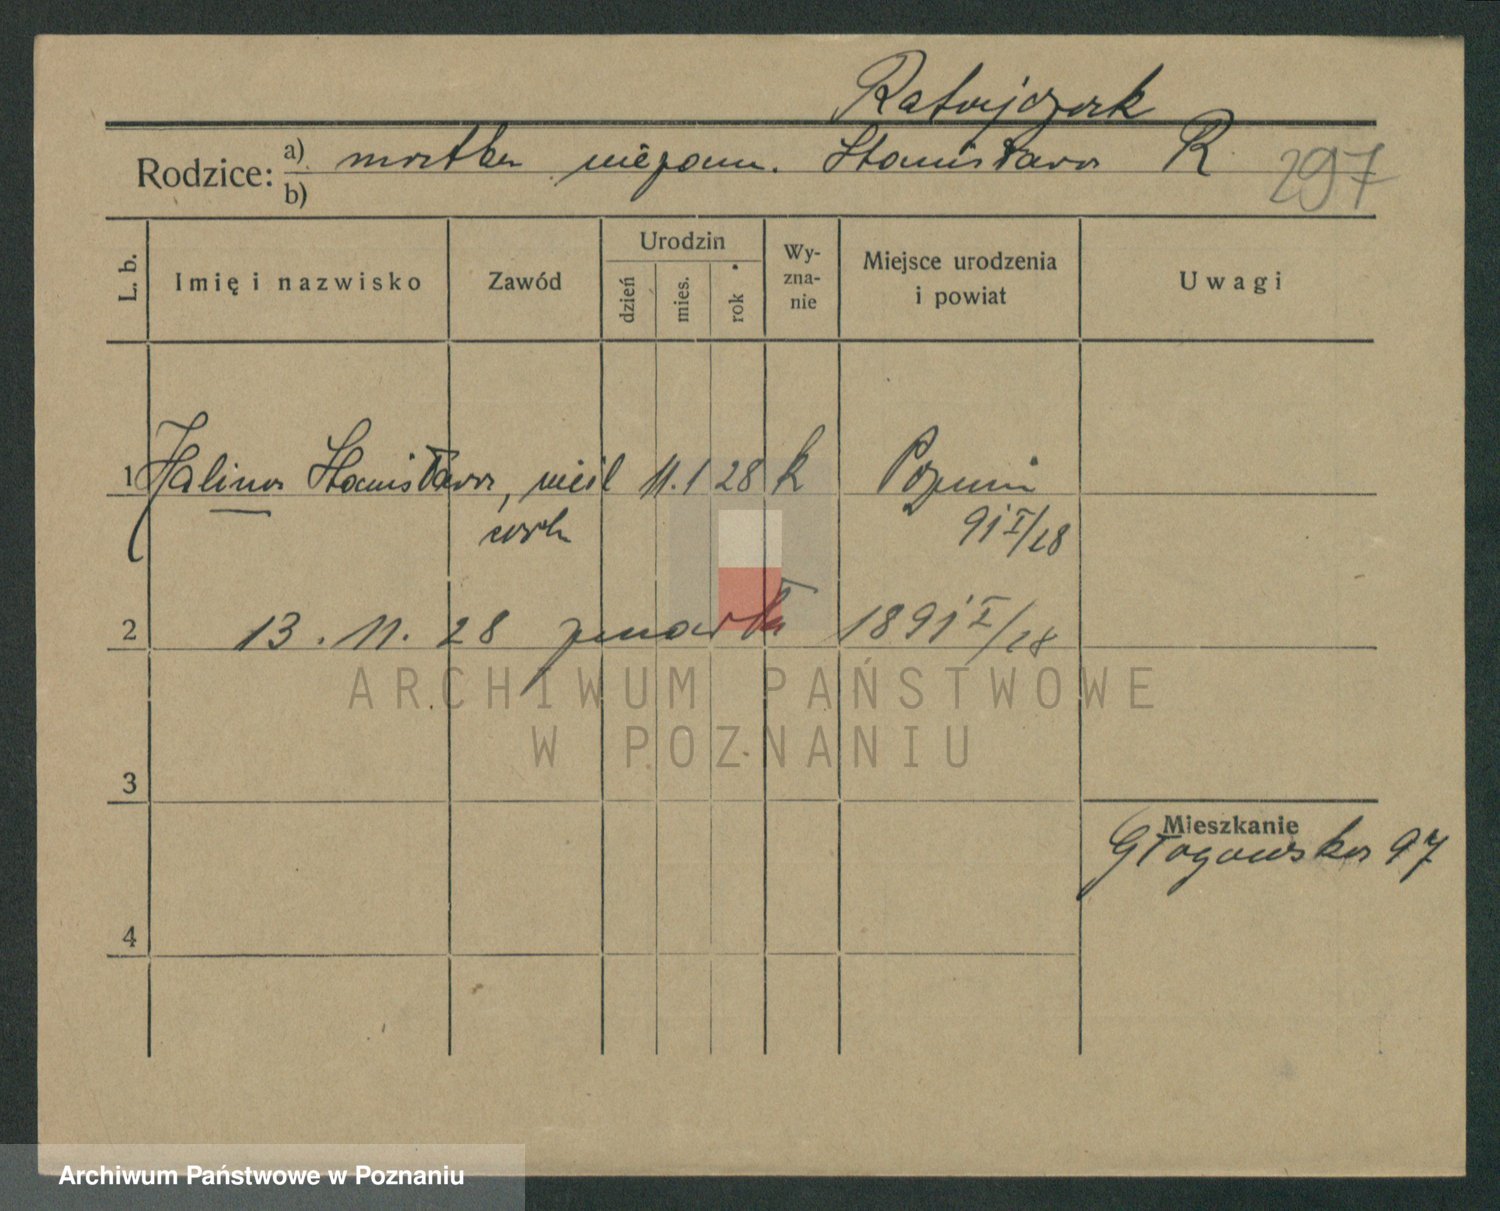 Ratajczak
Rodzice: a) matka niezam. Stanisława R
b)
297
L. b.
Imię i nazwisko
Zawód
Urodzin
dzień
mies.
rok
Wy-
zna-
nie
Miejsce urodzenia
i powiat
Uwagi
1 Halina Stanisława, nieśl 11. 1 28 k Poznań
córka
91 I/28
2 13. 11. 28 zmarła 1891 I/28
ARCHIWUM PAŃSTWOWE
W POZNANIU
3
Mieszkanie
Głogowska 97
4
Archiwum Państwowe w Poznaniu